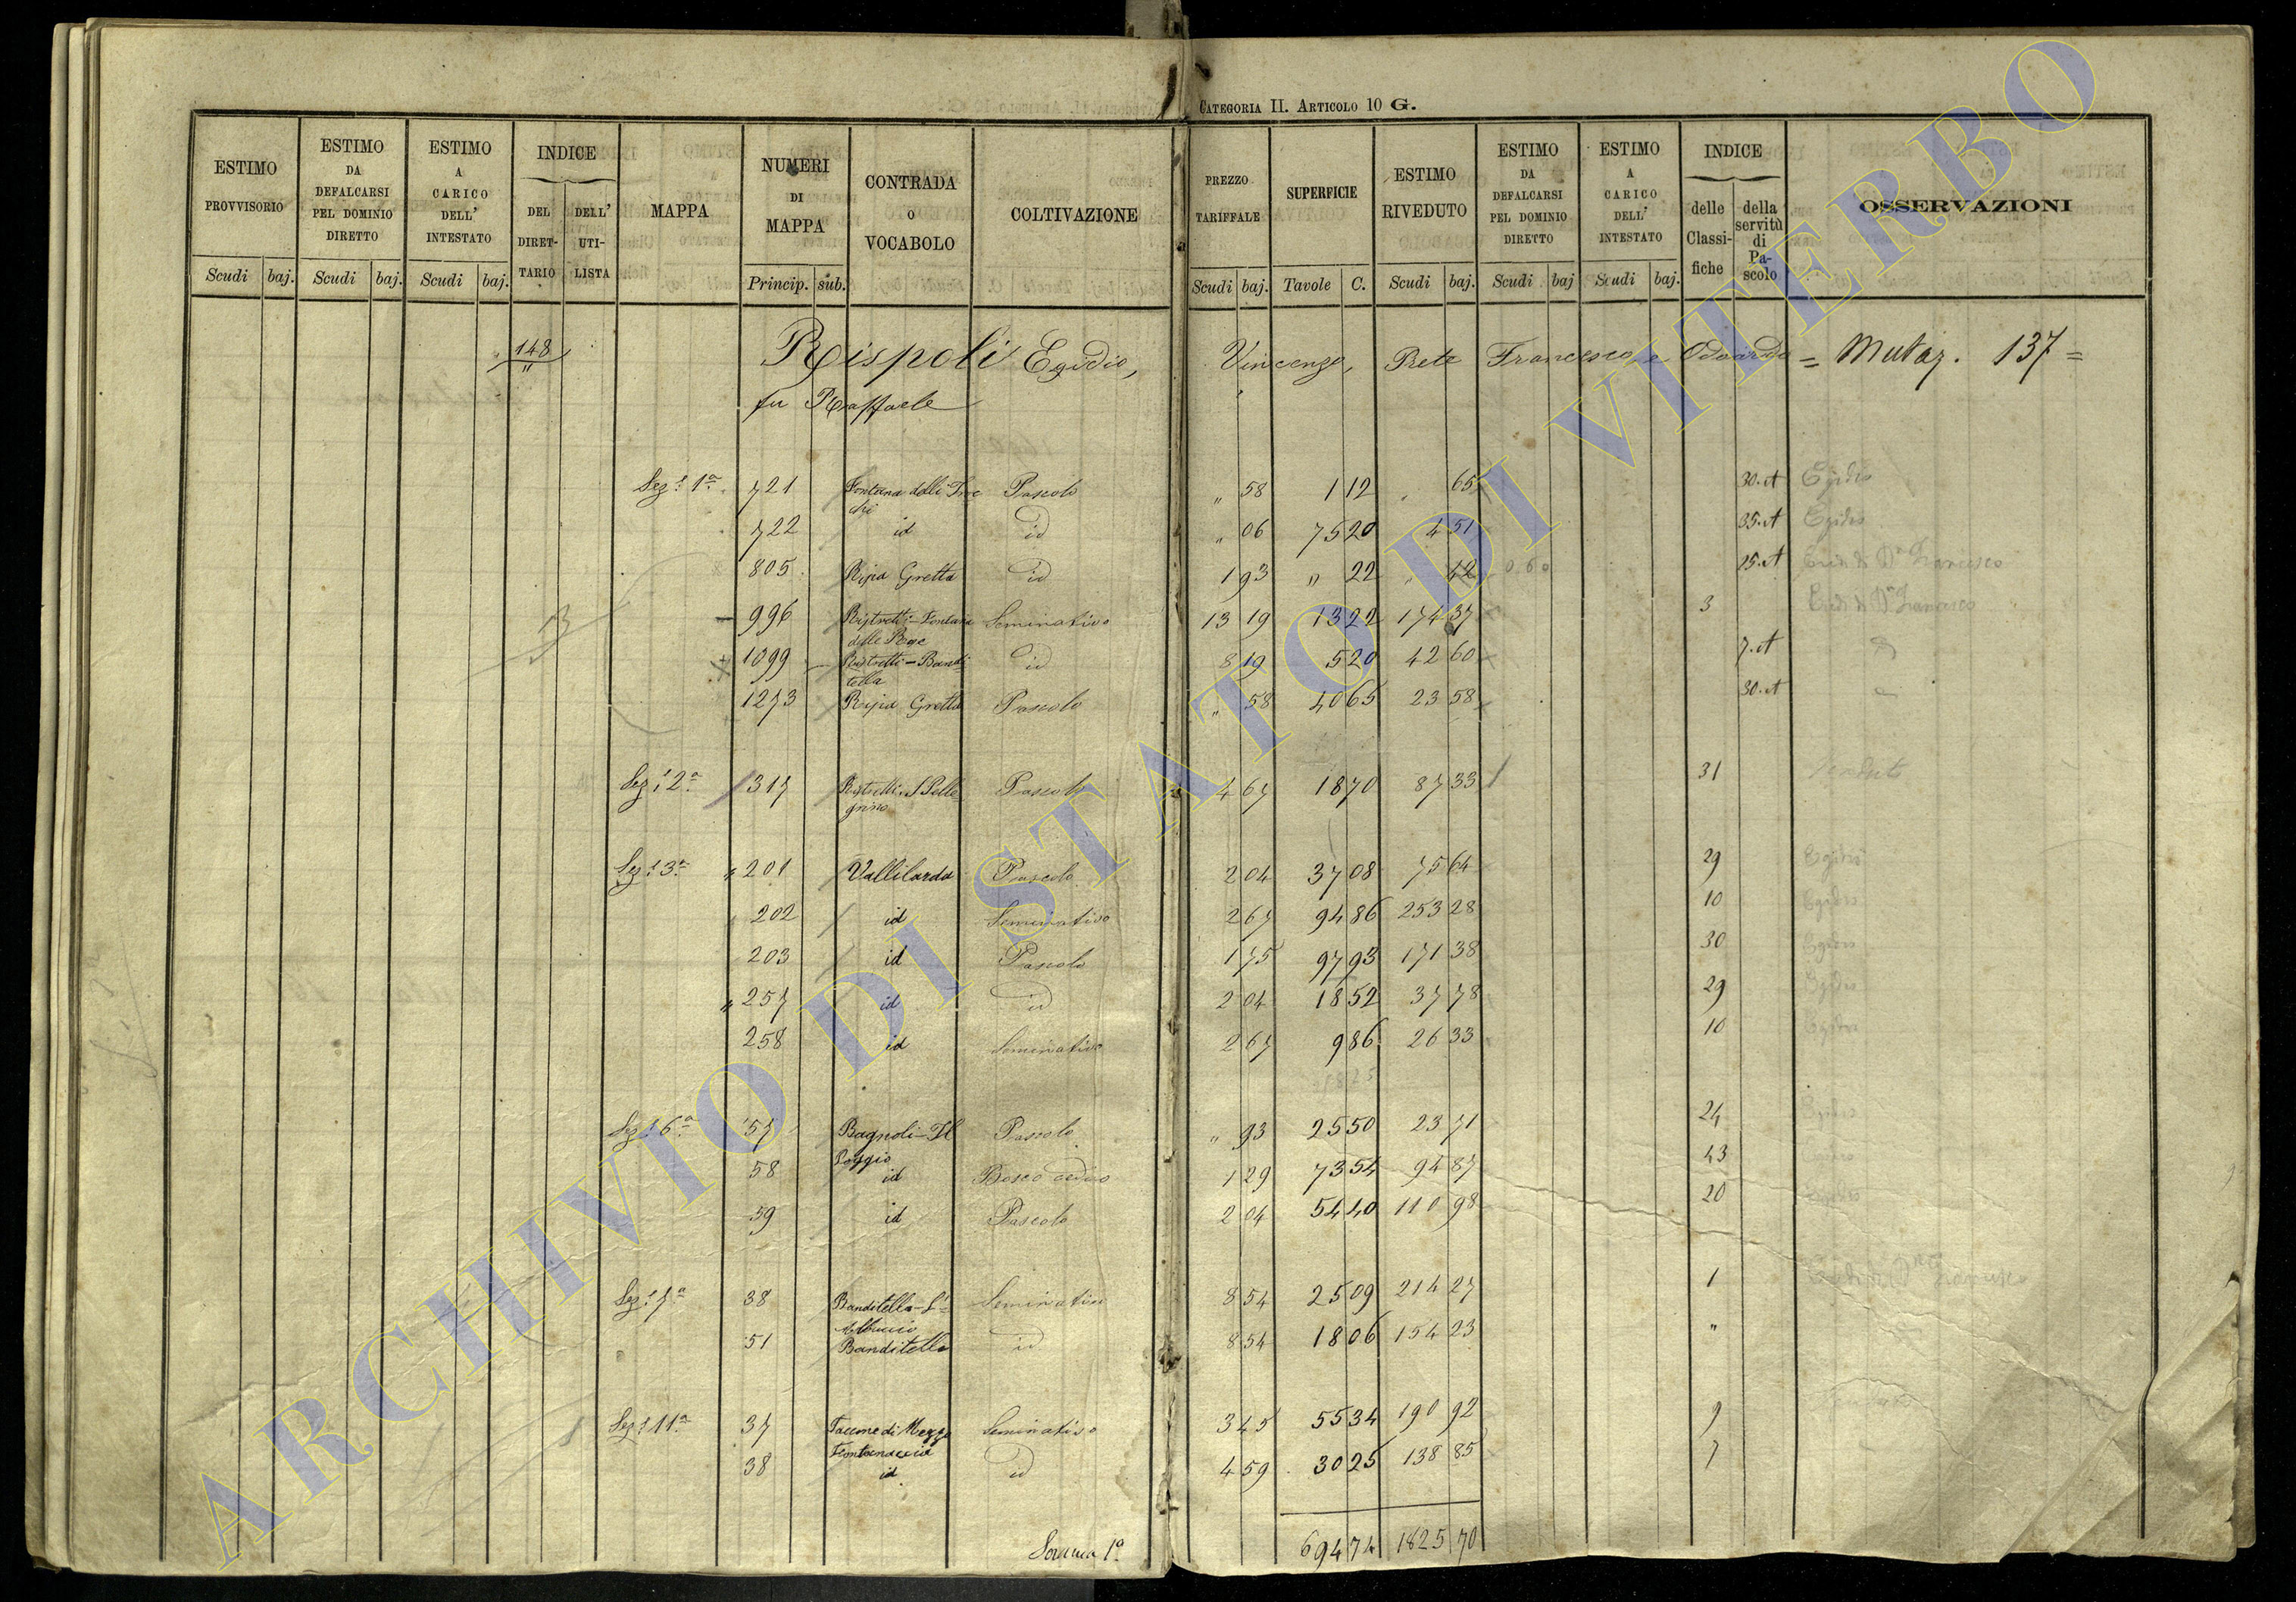 CATEGORIA II. ARTICOLO 10 G.
ESTIMO PROVVISORIO Scudi baj.
ESTIMO DA DEFALCARSI PEL DOMINIO DIRETTO Scudi baj.
ESTIMO A CARICO DELL' INTESTATO Scudi baj.
INDICE DEL DIRET-TARIO DELL' UTI-LISTA
MAPPA
NUMERI DI MAPPA Princip. sub.
CONTRADA O VOCABOLO
COLTIVAZIONE
PREZZO TARIFFALE Scudi baj.
SUPERFICIE Tavole C.
ESTIMO RIVEDUTO Scudi baj.
ESTIMO DA DEFALCARSI PEL DOMINIO DIRETTO Scudi baj
ESTIMO A CARICO DELL' INTESTATO Scudi baj.
INDICE delle Classi-fiche della servitù di Pa-scolo
OSSERVAZIONI
148 Rispoli Egidio, Vincenzo, Prete Francesco e Odoardo = Mutaz. 137 =
"
fu Raffaele
Sez: 1ª 721 Fontana delli Troc Pascolo " 58 1 12 65 30.A Egidio
chi
722 id id " 06 75 20 4 51 35.A Egidio
805 Ripa Gretta id 1 93 " 22 " 42 0 60 15.A Eredi di Dn Francesco
996 Ristretti - Fontana Seminativo 13 19 13 22 174 37 3 Eredi di Dn Francesco
delle Rose
1099 Ristretti - Bandi id 8 19 5 20 42 60 7.A
tella
1273 Ripa Gretta Pascolo " 58 40 65 23 58 30.A
Sez: 2ª 317 Ristretti S Pelle Pascolo 4 67 18 70 87 33 31
grino
Sez: 3ª 201 Vallilarda Pascolo 2 04 37 08 75 64 29 Egidio
202 id Seminativo 2 67 94 86 253 28 10 Egidio
203 id Pascolo 1 75 97 93 171 38 30 Egidio
257 id id 2 04 18 52 37 78 29 Egidio
258 id Seminativo 2 67 9 86 26 33 10 Egidio
Sez: 6ª 57 Bagnoli - Il Pascolo " 93 25 50 23 71 24 Egidio
Poggio
58 id Bosco ceduo 1 29 73 54 94 87 43
59 id Pascolo 2 04 54 40 110 98 20
Sez: 7ª 38 Banditella - S. Seminativo 8 54 25 09 214 27 1
Albuccio
51 Banditella id 8 54 18 06 154 23 "
Sez: 11ª 37 Faccme di Mezzo Seminativo 3 45 55 34 190 92 9
Fontanaccia
38 id id 4 59 30 25 138 85 7
Somma 1ª 694 74 1825 70
ARCHIVIO DI STATO DI VITERBO